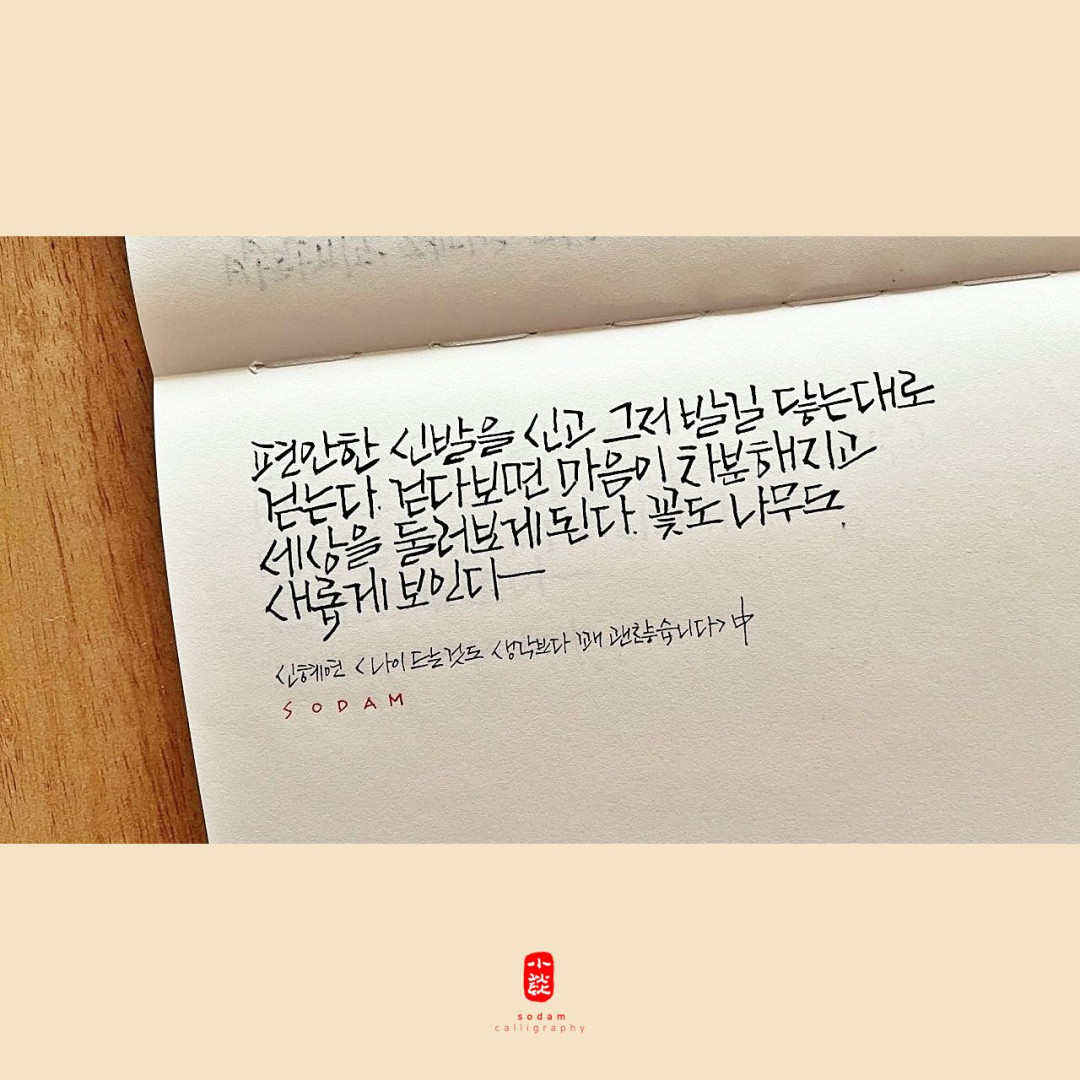 편안한 신발을 신고 그저 발길 닿는대로
걷는다. 걷다보면 마음이 차분해지고
세상을 둘러보게 된다. 꽃도 나무도
새롭게 보인다—
신혜연 <나이 드는것도 생각보다 꽤 괜찮습니다> 中
SODAM
小談
sodam
calligraphy